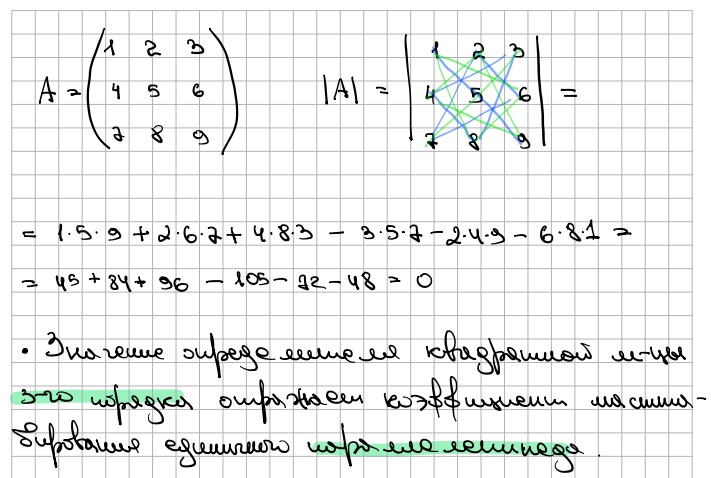 1 2 3 1 2 3
A = 4 5 6 |A| = 4 5 6 =
7 8 9 7 8 9
= 1·5·9 + 2·6·7 + 4·8·3 - 3·5·7 - 2·4·9 - 6·8·1 =
= 45 + 84 + 96 - 105 - 72 - 48 = 0
• Значение определителя квадратной м-цы
3-го порядка отражает коэффициент масшта-
бирования единичного параллелепипеда.